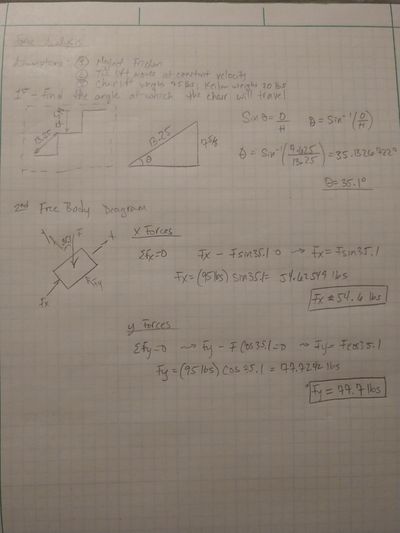 Force Analysis
Assumptions: ① Neglect Friction
② The lift moves at constant velocity
③ Chair lift weighs 75 lbs; Keilon weighs 20 lbs
1st - Find the angle at which the chair will travel
13.25
13.25
θ
7 5/8
Sin θ = O/H
θ = Sin⁻¹(O/H)
θ = Sin⁻¹(7.625/13.25) = 35.1326722°
θ = 35.1°
2nd Free Body Diagram
F
Fy
Fx
x Forces
Σfx=0 Fx - Fsin35.1 0 → Fx = Fsin35.1
Fx = (95lbs) sin35.1 = 54.62549 lbs
Fx ≈ 54.6 lbs
y Forces
Σfy=0 → Fy - F Cos35.1=0 → Fy = Fcos35.1
Fy = (95 lbs) Cos 35.1 = 77.7242 lbs
Fy = 77.7 lbs